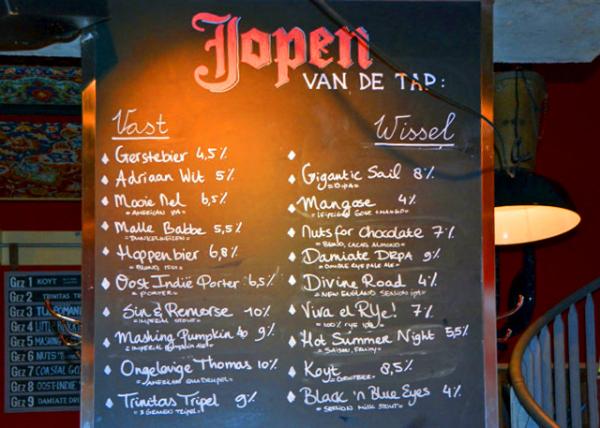 Jopen
VAN DE TAP:
Vast
Gerstebier 4,5%
Adriaan Wit 5%
Mooie Nel 6,5%
= AMERICAN IPA =
Malle Babbe 5,5%
= DUNKELWEIZEN =
Hoppenbier 6,8%
Oost Indië Porter 6,5%
= PORTER =
Sin & Remorse 10%
= IMPERIAL STOUT =
Mashing Pumpkin 9%
Ongelovige Thomas 10%
= AMERICAN QUADRUPEL =
Trinitas Tripel 9%
= 3 GRANEN TRIPEL =
Wissel
Gigantic Sail 8%
Mangose 4%
= LEIPZIG GOSE + MANGO =
Nuts for Chocolate 7%
Damiate DRPA 9%
Divine Road 4%
= NEW ENGLAND SESSION IPA =
Viva el RYe! 7%
= 100% RYE IPA =
Hot Summer Night 5,5%
= SAISON, FRUITY =
Koyt 8,5%
= GRUITBIER =
Black 'n Blue Eyes 4%
= SESSION MILK STOUT =
Grz 1 KOYT
Grz 2 TRINITAS TR
Grz 3
Grz 4
Grz 5 MASHIN
Grz 6 NUTS
Grz 7 COASTAL GO
Grz 8 OOST-INDIE
Grz 9 DAMIATE DR